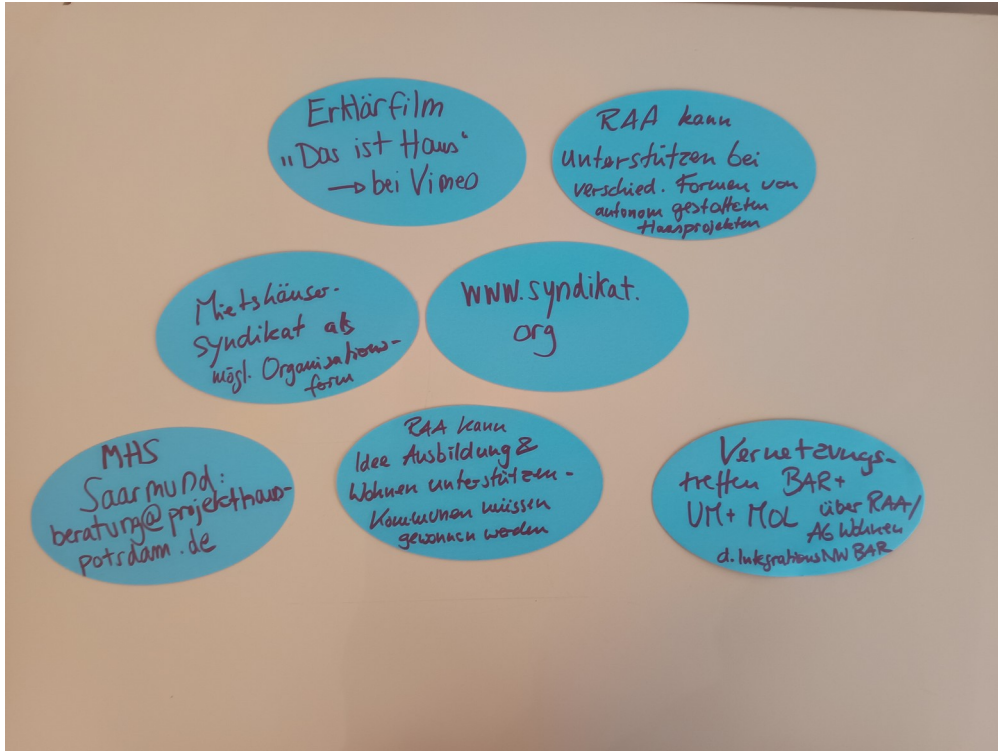 Erklärfilm
„Das ist Haus“
→ bei Vimeo
RAA kann
unterstützen bei
verschied. Formen von
autonom gestalteten
Hausprojekten
Mietshäuser-
syndikat als
mögl. Organisations-
form
www.syndikat.
org
MHS
Saarmund:
beratung@projekthaus-
potsdam.de
RAA kann
Idee Ausbildung &
Wohnen unterstützen -
Kommunen müssen
gewonnen werden
Vernetzungs-
treffen BAR+
UM+ MOL über RAA/
AG Wohnen
d. IntegrationsNW BAR